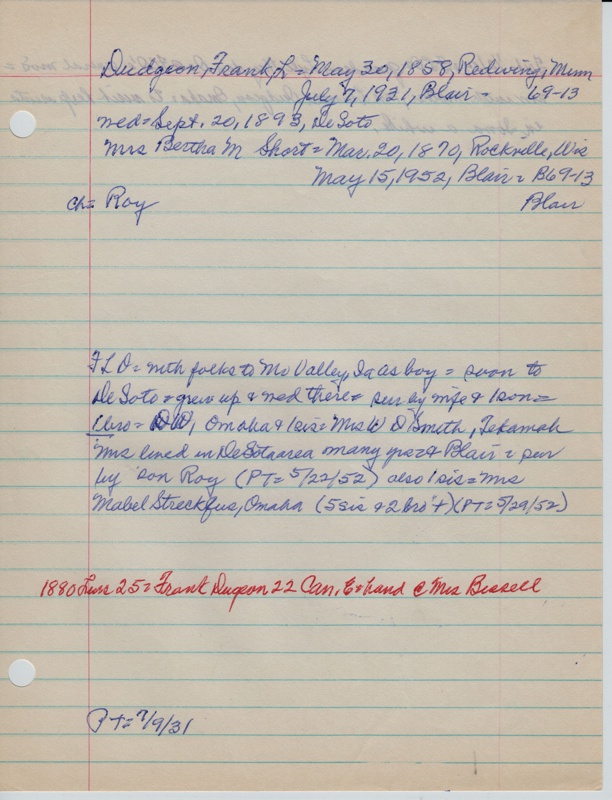 Dudgeon, Frank, L = May 30, 1858, Redwing, Minn
July 7, 1931, Blair - 69-13
med = Sept. 20, 1893, DeSoto
Mrs Bertha M Short = Mar. 20, 1870, Rockville, Wis
May 15, 1952, Blair = B69-13
Blair
Ch = Roy
F L D = with folks to Mo Valley, Ia as boy = soon to
DeSoto = grew up & med there = sur by wife & 1 son =
1 bro = DW, Omaha & 1 sis = Mrs W D Smith, Tekamah
Mrs lived in DeSoto area many yrs = & Blair = sur
by son Roy (PT = 5/22/52) also 1 sis = Mrs
Mabel Streckfus, Omaha (5 sis & 2 bro's +) (PT = 5/29/52)
1880 25 = Frank Dugeon 22 Can, E = hand @ Mrs Bissell
PT = 7/9/31